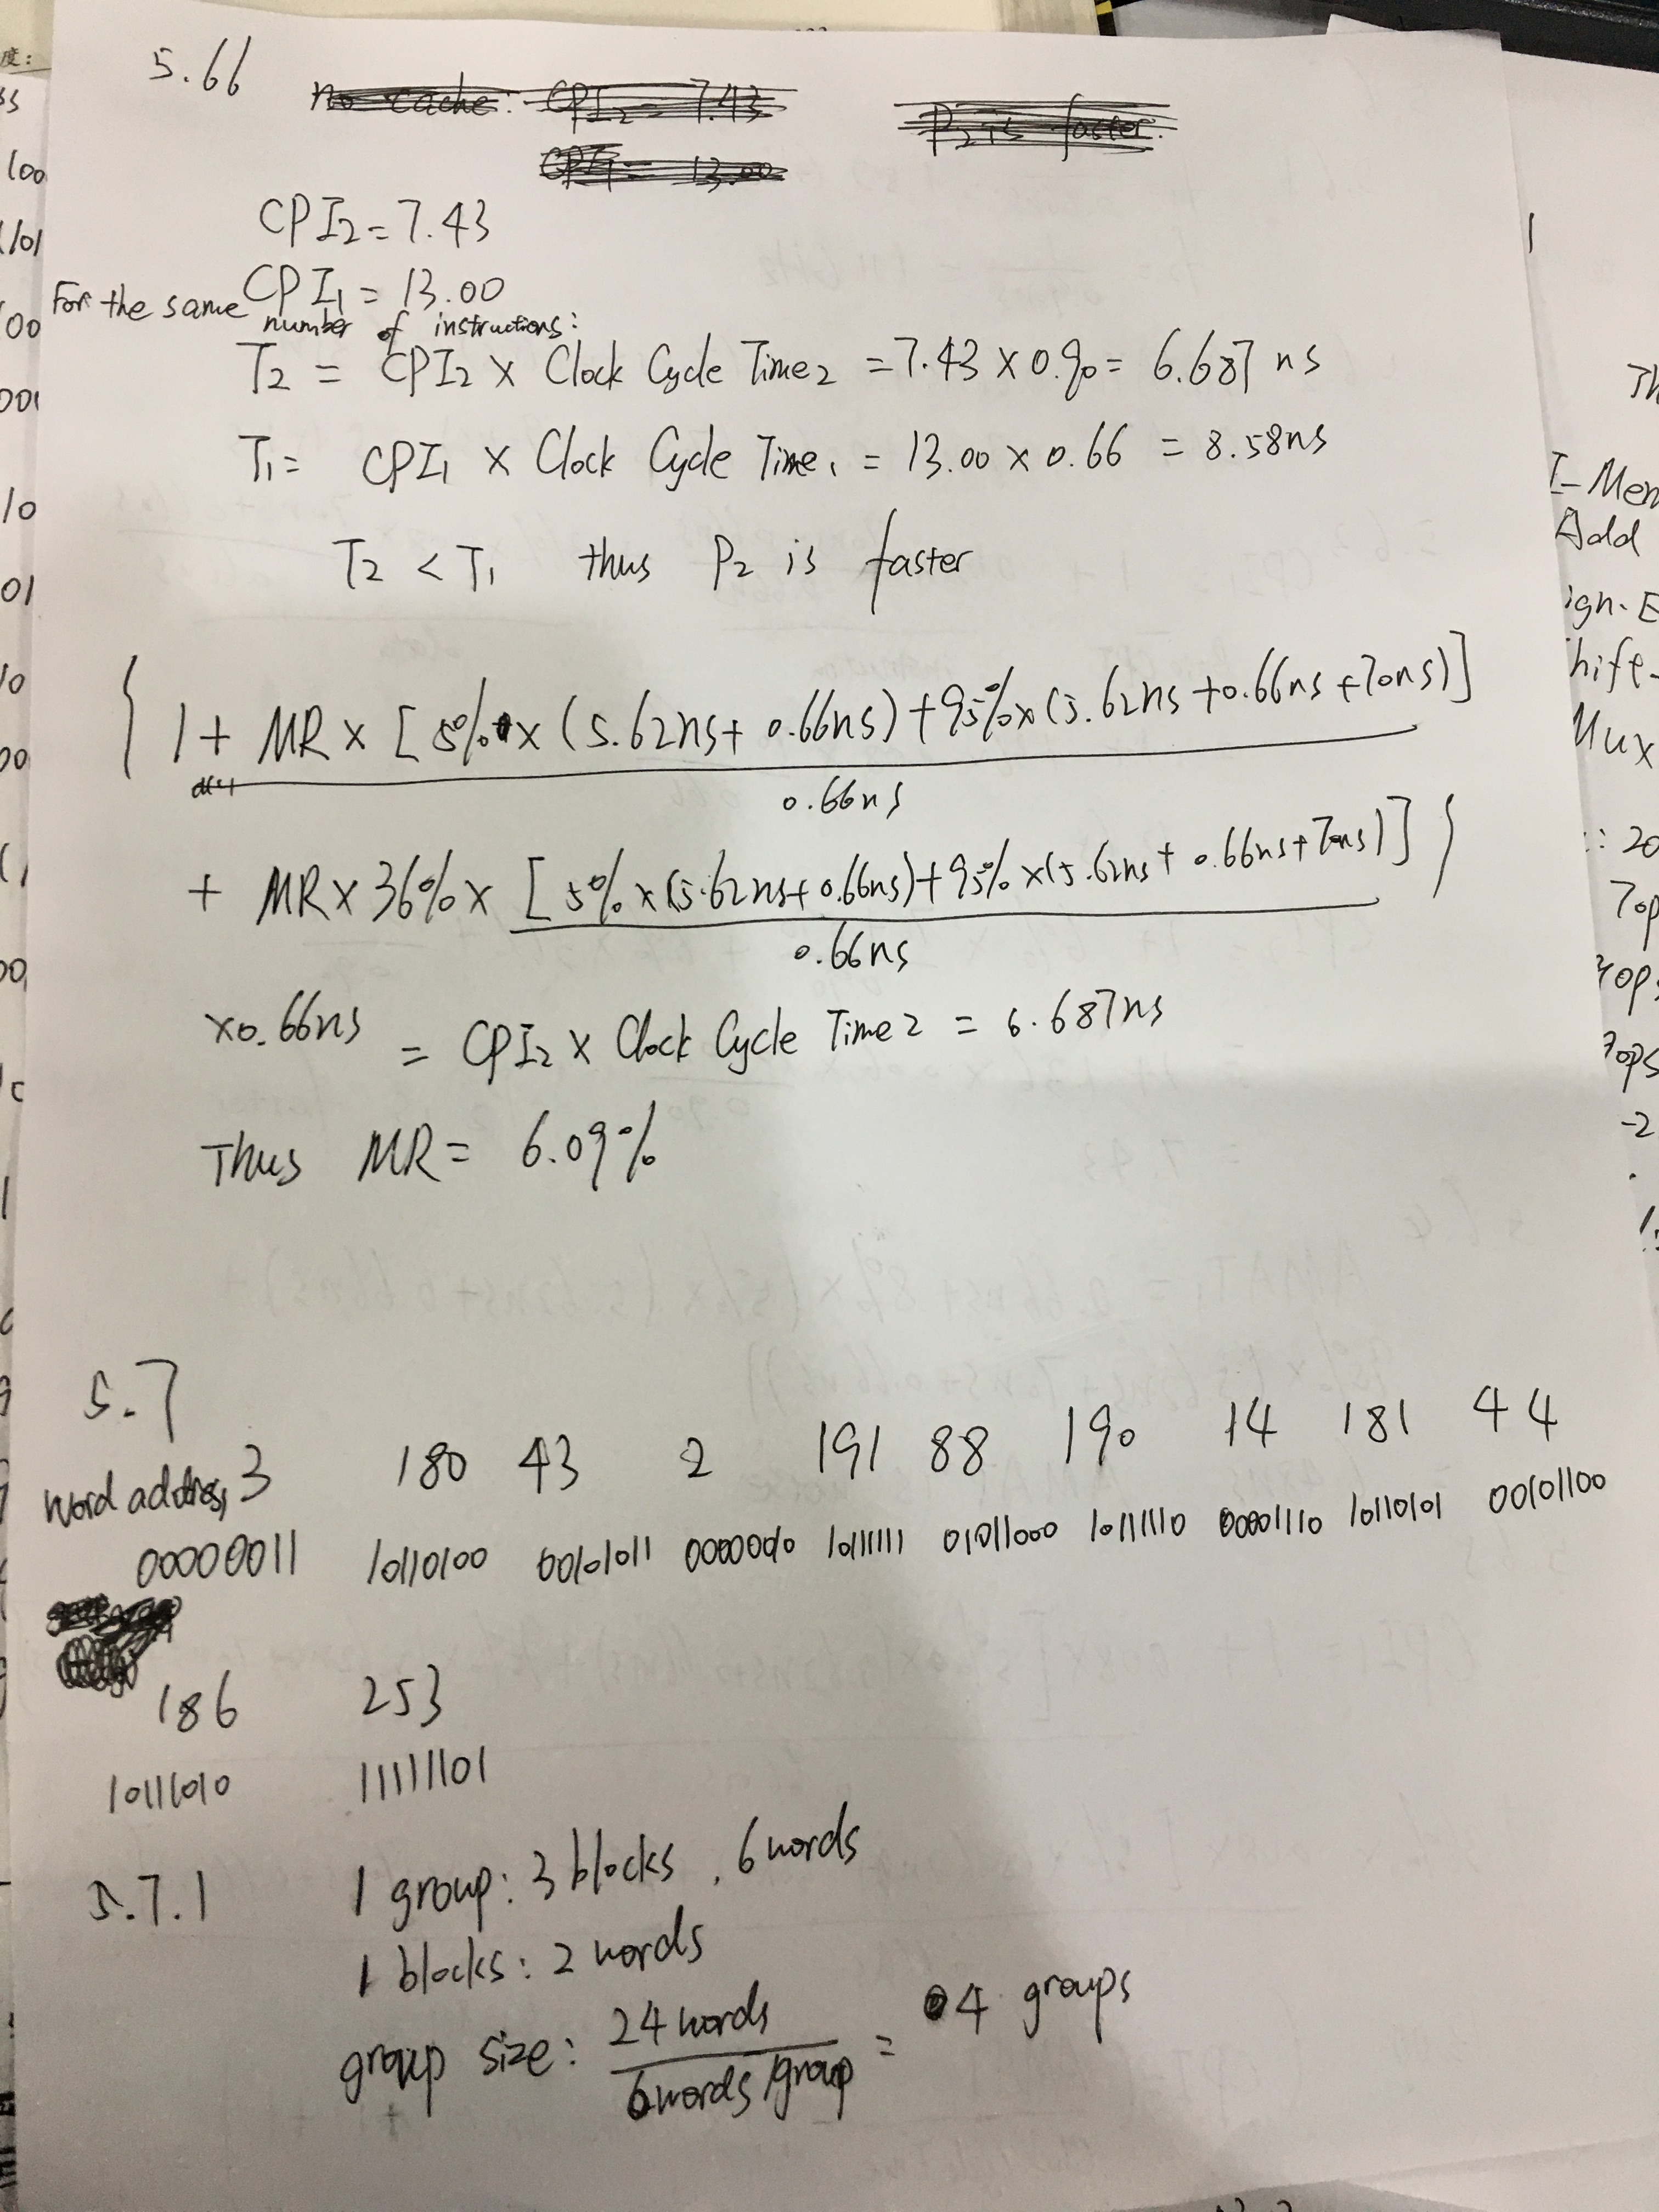 5.66
no cache: CPI₂ = 7.43
P₂ is faster.
CPI₁ = 13.00
CPI₂ = 7.43
CPI₁ = 13.00
For the same number of instructions:
T₂ = CPI₂ × Clock Cycle Time₂ = 7.43 × 0.90 = 6.687 ns
T₁ = CPI₁ × Clock Cycle Time₁ = 13.00 × 0.66 = 8.58ns
T₂ < T₁ thus P₂ is faster
{ 1 + MR × [ 5% × (5.62ns + 0.66ns) + 95% × (5.62ns + 0.66ns + 70ns) ]
0.66ns
+ MR × 36% × [ 5% × (5.62ns + 0.66ns) + 95% × (5.62ns + 0.66ns + 70ns) ] }
0.66ns
×0.66ns = CPI₂ × Clock Cycle Time 2 = 6.687ns
Thus MR = 6.09%
5.7
word address 3 180 43 2 191 88 190 14 181 44
00000011 10110100 00101011 00000010 10111111 01011000 10111110 00001110 10110101 00101100
186 253
10111010 11111101
5.7.1 1 group: 3 blocks, 6 words
1 blocks: 2 words
group size: 24 words
6 words/group
= 4 groups
I-Mem
Add
Mux